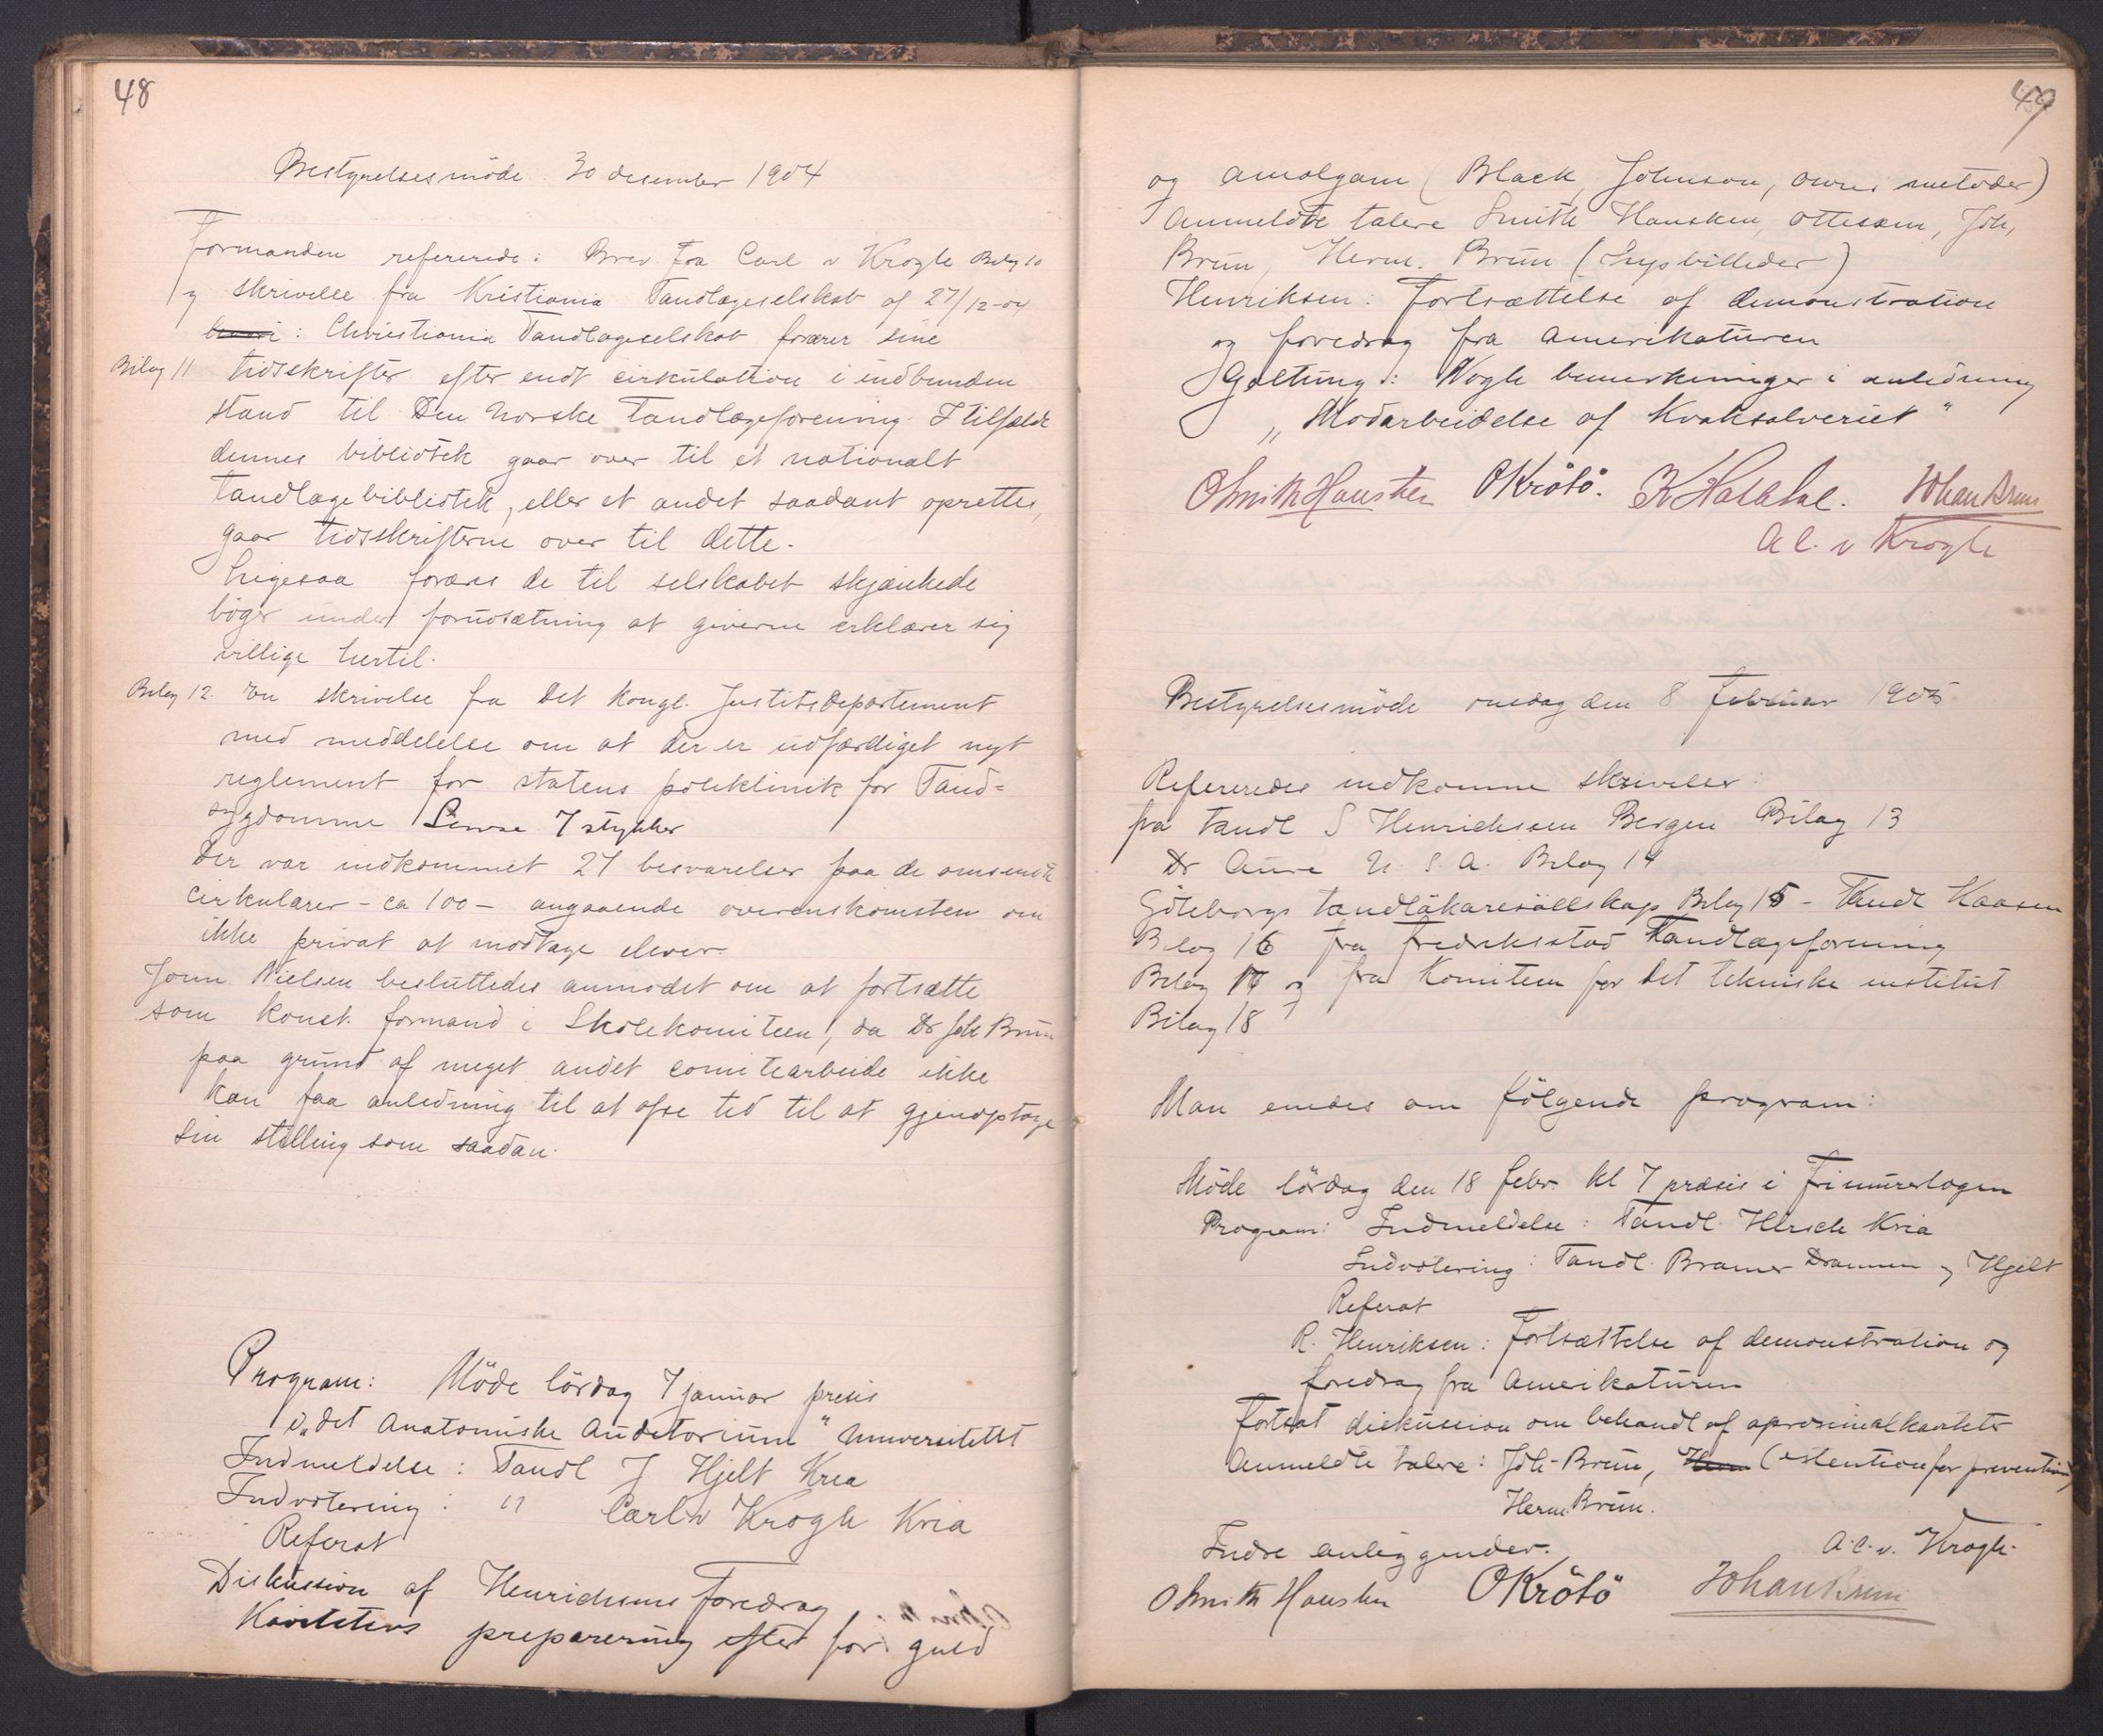 48
Bestyrelsesmöde 30 desember 1904
Formanden refererede: Brev fra Carl v Krogh Bilag 10
og skrivelse fra Kristiania Tandlægeselskab af 27/12-04
: Christiania Tandlægeselskab forærer sine
Bilag 11 tidsskrifter efter endt cirkulation i indbunden
stand til Den norske Tandlægeforening. I tilfælde
dennes bibliotek gaar over til et nationalt
tandlægebibliotek, eller et andet saadant oprettes,
gaar tidsskrifterne over til dette.
Ligesaa foræres de til selskabet skjænkede
bøger under forudsætning at giverne erklærer sig
villige hertil.
Bilag 12. En skrivelse fra Det kongl. Justitsdepartement
med meddelelse om at der er udfærdiget nyt
reglement for statens poliklinik for Tand=
sygdomme 7 stykker
Der var indkommet 27 besvarelser paa de omsendte
cirkulærer - ca 100 - angaaende overenskomsten om
ikke privat at modtage elever.
Jonn Nielsen besluttedes anmodet om at fortsætte
som konst. formand i Skolekomiteen, da Dr Joh Brun
paa grund af meget andet comitearbeide ikke
kan faa anledning til at ofre tid til at gjenoptage
sin stilling som saadan.
Program: Möde lördag 7 januar presis
i „det Anatomiske Auditorium" Universitetet
Indmeldelse: Tandl J Hjelt Kria
Indvotering: " Carl v Krogh Kria
Referat
Diskussion af Henrichsens Foredrag
Kavitetens preparering efter for guld
49
og amalgam (Black, Johnson, metoder)
Anmeldte talere Smith Housken, Ottesen, Joh,
Brun, Herm. Brun (Lysbilleder)
Henriksen: Fortsættelse af demonstration
og foredrag fra Amerikaturen
Galtung: Nogle bemerkninger i anledning
„Modarbeidelse af Kvaksalveriet"
O Smith Housken OKrötö. Johan Brun
A C. v Krogh
Bestyrelsesmöde onsdag den 8 februar 1905
Refereredes indkomne skrivelser:
fra tandl S Henrichsen Bergen Bilag 13
Dr Aure U. S. A. Bilag 14
Göteborgs tandläkaresällskap Bilag 15 - Tandl Kaasen
Bilag 16 fra Fredriksstad Tandlægeforening
Bilag 17 og fra Komiteen for Det tekniske institut
Bilag 18
Man enedes om följgende program:
Möde lördag den 18 febr. kl 7 præsis i Frimurerlogen
Program: Indmeldelse: Tandl. Hirsch Kria
Indvotering: Tandl. Bramer Drammen og Hjelt
Referat
R. Henriksen: Fortsættelse af demonstration og
foredrag fra Amerikaturen
Fortsat diskussion om behandl af aproximalkaviteter
Anmeldte talere: Joh. Brun, Herm (extention for prevention)
Herm Brun.
Indre anliggender. A. C. v. Krogh.
O Smith Housken OKrötö Johan Brun